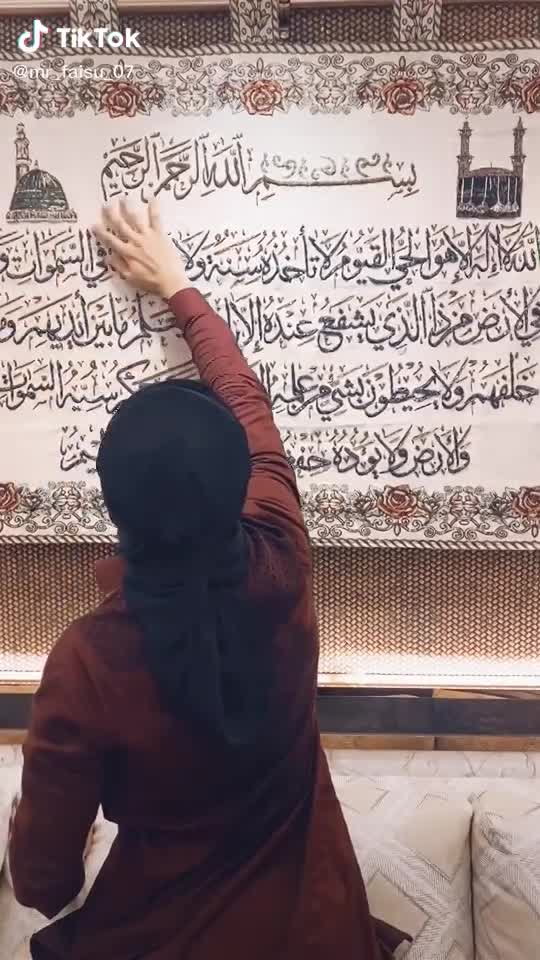 TikTok
@mr_faisu_07
بسم الله الرحمن الرحيم
الله لا إله إلا هو الحي القيوم لا تأخذه سنة ولا في السموات و
في الأرض من ذا الذي يشفع عنده إلا يعلم ما بين أيديهم و
خلفهم ولا يحيطون بشيء من علمه كرسيه السموات
والأرض ولا يؤده حفظ